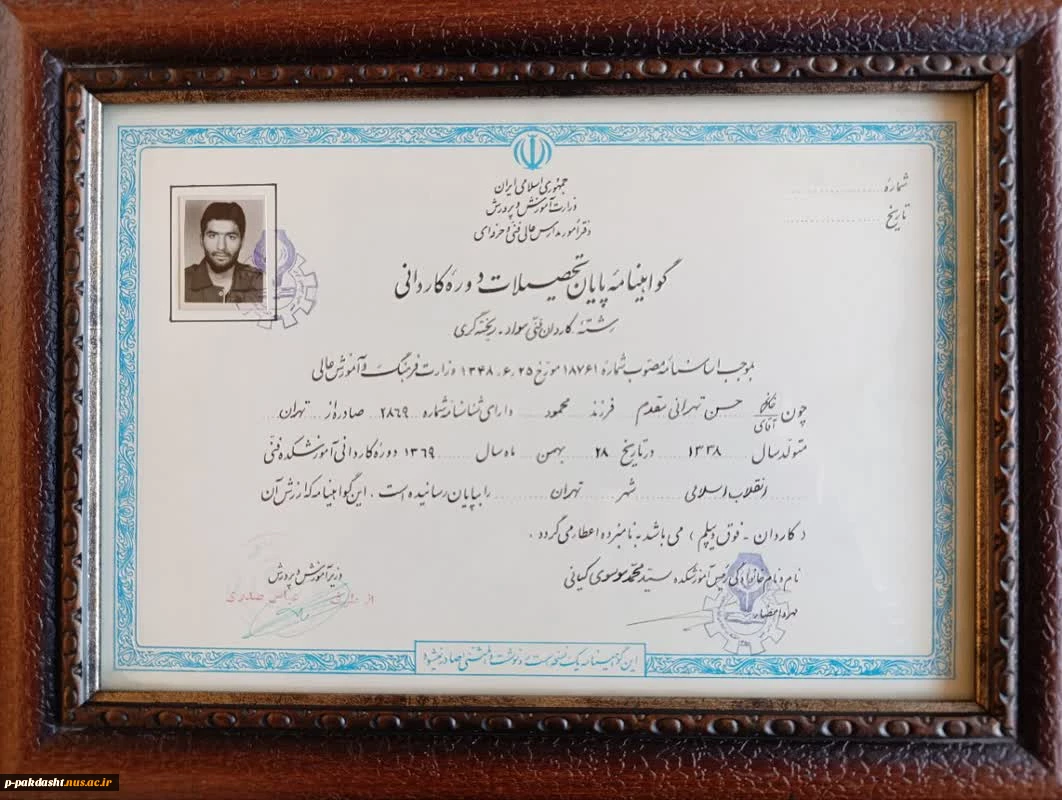 جمهوری اسلامی ایران
وزارت آموزش و پرورش
دفتر امور مدارس عالی فنی و حرفه‌ای
شماره
تاریخ
گواهینامه پایان تحصیلات دوره کاردانی
رشته کاردان فنی مواد - ریخته گری
بموجب اساسنامه مصوب شماره ۱۸۷۶۱ مورخ ۱۳۴۸.۶.۲۵ وزارت فرهنگ و آموزش عالی
چون خانم آقای حسن تهرانی مقدم فرزند محمود دارای شناسنامه شماره ۲۸۶۹ صادره از تهران
متولد سال ۱۳۳۸ در تاریخ ۲۸ بهمن ماه سال ۱۳۶۹ دوره کاردانی آموزشکده فنی
انقلاب اسلامی شهر تهران را بپایان رسانیده است . این گواهینامه که ارزش آن
( کاردان - فوق دیپلم ) می باشد به نامبرده اعطا می گردد .
نام و نام خانوادگی رئیس آموزشکده سید محمد موسوی کیانی
مهر و امضاء
وزیر آموزش و پرورش
از طرف عباس صدری
این گواهینامه یک نسخه است و رونوشت یا المثنی صادر نمیشود
p-pakdasht.nus.ac.ir